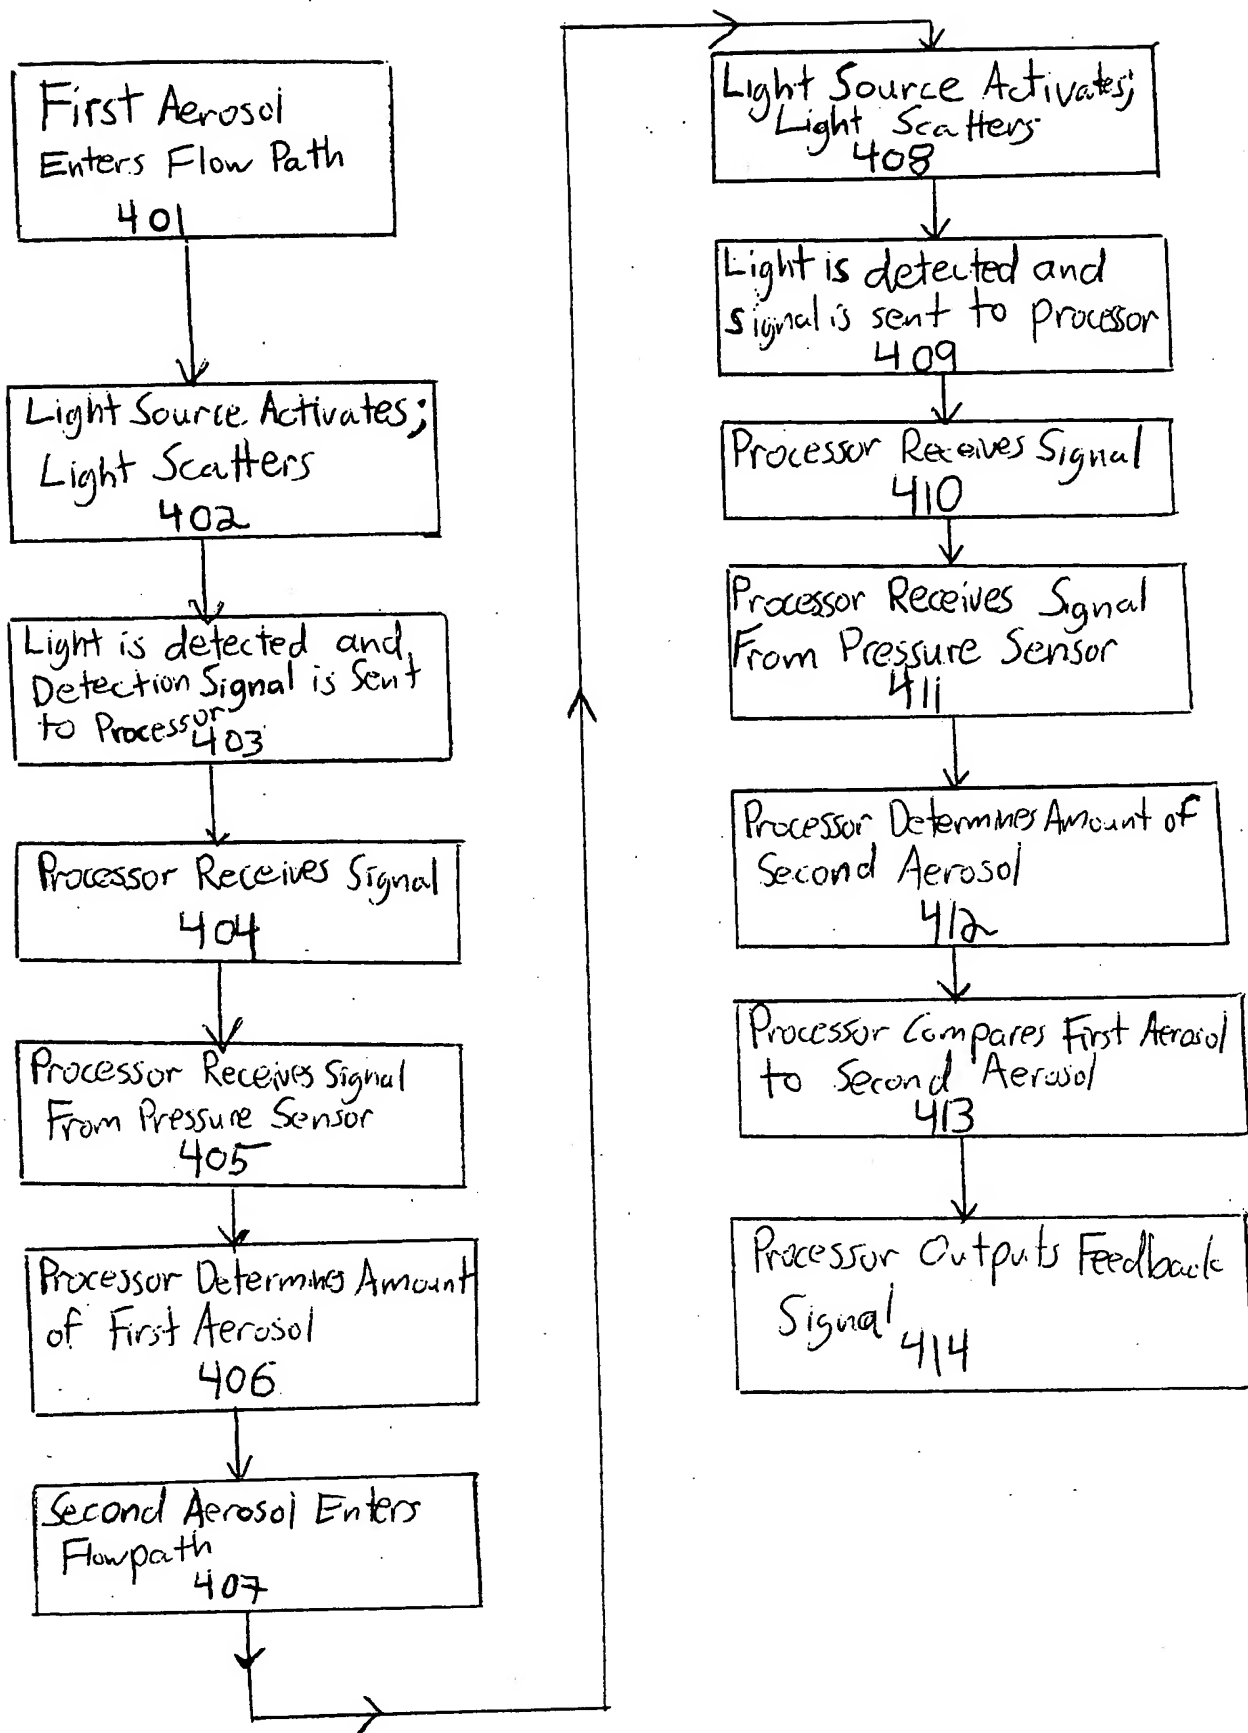 First Aerosol
Enters Flow Path
401
Light Source Activates;
Light Scatters
402
Light is detected and
Detection Signal is Sent
to Processor
403
Processor Receives Signal
404
Processor Receives Signal
From Pressure Sensor
405
Processor Determines Amount
of First Aerosol
406
Second Aerosol Enters
Flowpath
407
Light Source Activates;
Light Scatters
408
Light is detected and
signal is sent to processor
409
Processor Receives Signal
410
Processor Receives Signal
From Pressure Sensor
411
Processor Determines Amount of
Second Aerosol
412
Processor Compares First Aerosol
to Second Aerosol
413
Processor Outputs Feedback
Signal
414